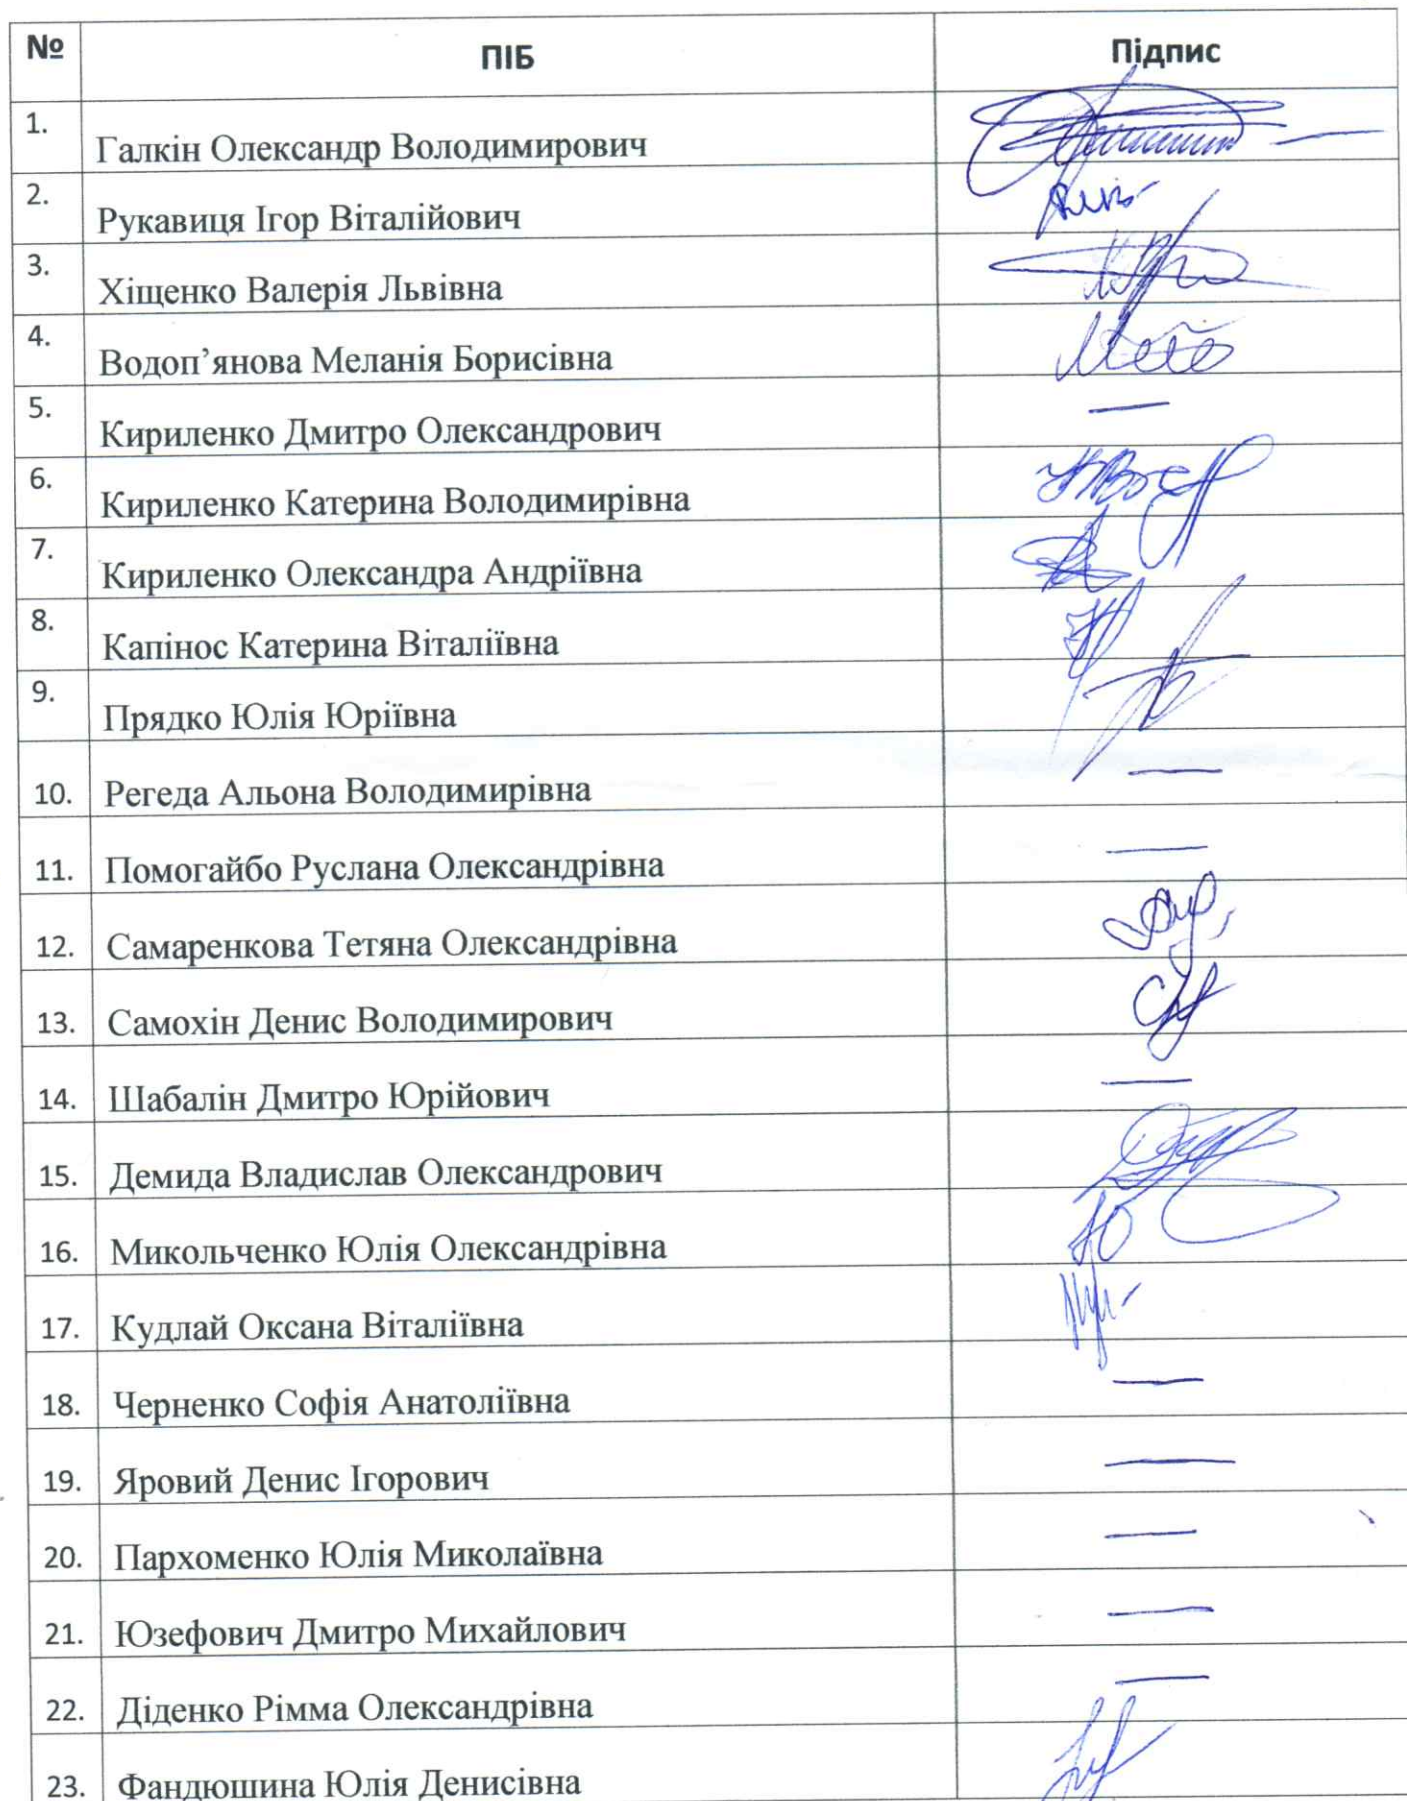 № ПІБ Підпис
1. Галкін Олександр Володимирович
2. Рукавиця Ігор Віталійович
3. Хіщенко Валерія Львівна
4. Водоп’янова Меланія Борисівна
5. Кириленко Дмитро Олександрович —
6. Кириленко Катерина Володимирівна
7. Кириленко Олександра Андріївна
8. Капінос Катерина Віталіївна
9. Прядко Юлія Юріївна
10. Регеда Альона Володимирівна —
11. Помогайбо Руслана Олександрівна —
12. Самаренкова Тетяна Олександрівна
13. Самохін Денис Володимирович
14. Шабалін Дмитро Юрійович —
15. Демида Владислав Олександрович
16. Микольченко Юлія Олександрівна
17. Кудлай Оксана Віталіївна
18. Черненко Софія Анатоліївна —
19. Яровий Денис Ігорович —
20. Пархоменко Юлія Миколаївна —
21. Юзефович Дмитро Михайлович —
22. Діденко Рімма Олександрівна —
23. Фандюшина Юлія Денисівна